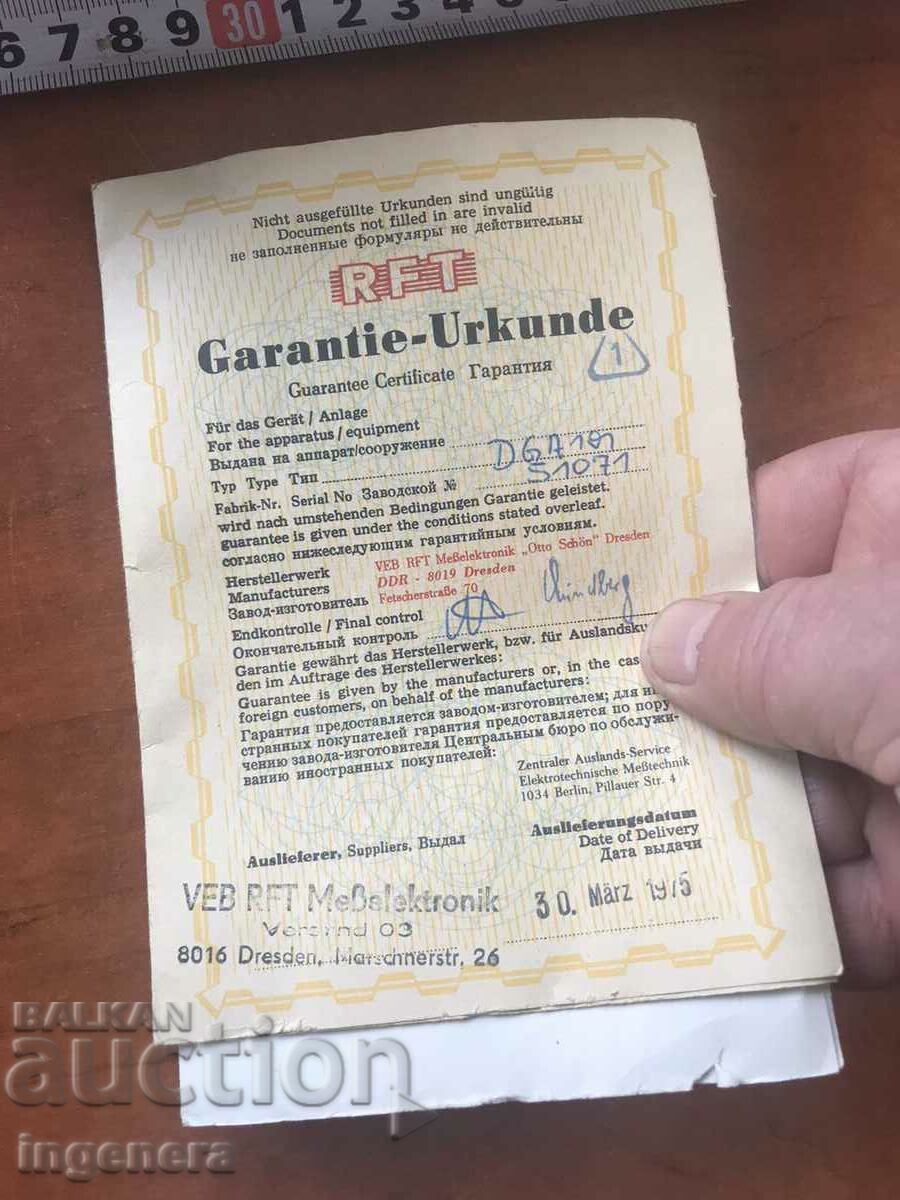 6 7 8 9 30 1 2 3 4 5 6
Nicht ausgefüllte Urkunden sind ungültig
Documents not filled in are invalid
не заполненные формуляры не действительны
RFT
Garantie-Urkunde
1
Guarantee Certificate Гарантия
Für das Gerät / Anlage
For the apparatus / equipment
Выдана на аппарат/сооружение
Typ Type Тип
DGA 101
Fabrik-Nr. Serial No Заводской №
51071
wird nach umstehenden Bedingungen Garantie geleistet.
guarantee is given under the conditions stated overleaf.
согласно нижеследующим гарантийным условиям.
Herstellerwerk
Manufacturers
Завод-изготовитель
VEB RFT Meßelektronik „Otto Schön" Dresden
DDR - 8019 Dresden
Fetscherstraße 70
Endkontrolle / Final control
Окончательный контроль
Garantie gewährt das Herstellerwerk, bzw. für Auslandsku
den im Auftrage des Herstellerwerkes:
Guarantee is given by the manufacturers or, in the cas
foreign customers, on behalf of the manufacturers:
Гарантия предоставляется заводом-изготовителем; для ин
странных покупателей гарантия предоставляется по пору
чению завода-изготовителя Центральным бюро по обслужи-
ванию иностранных покупателей:
Zentraler Auslands-Service
Elektrotechnische Meßtechnik
1034 Berlin, Pillauer Str. 4
Auslieferer, Suppliers, Выдал
Auslieferungsdatum
Date of Delivery
Дата выдачи
VEB RFT Meßelektronik
Versand 03
8016 Dresden, Marschnerstr. 26
30. März 1975
BALKAN
auction
ingenera